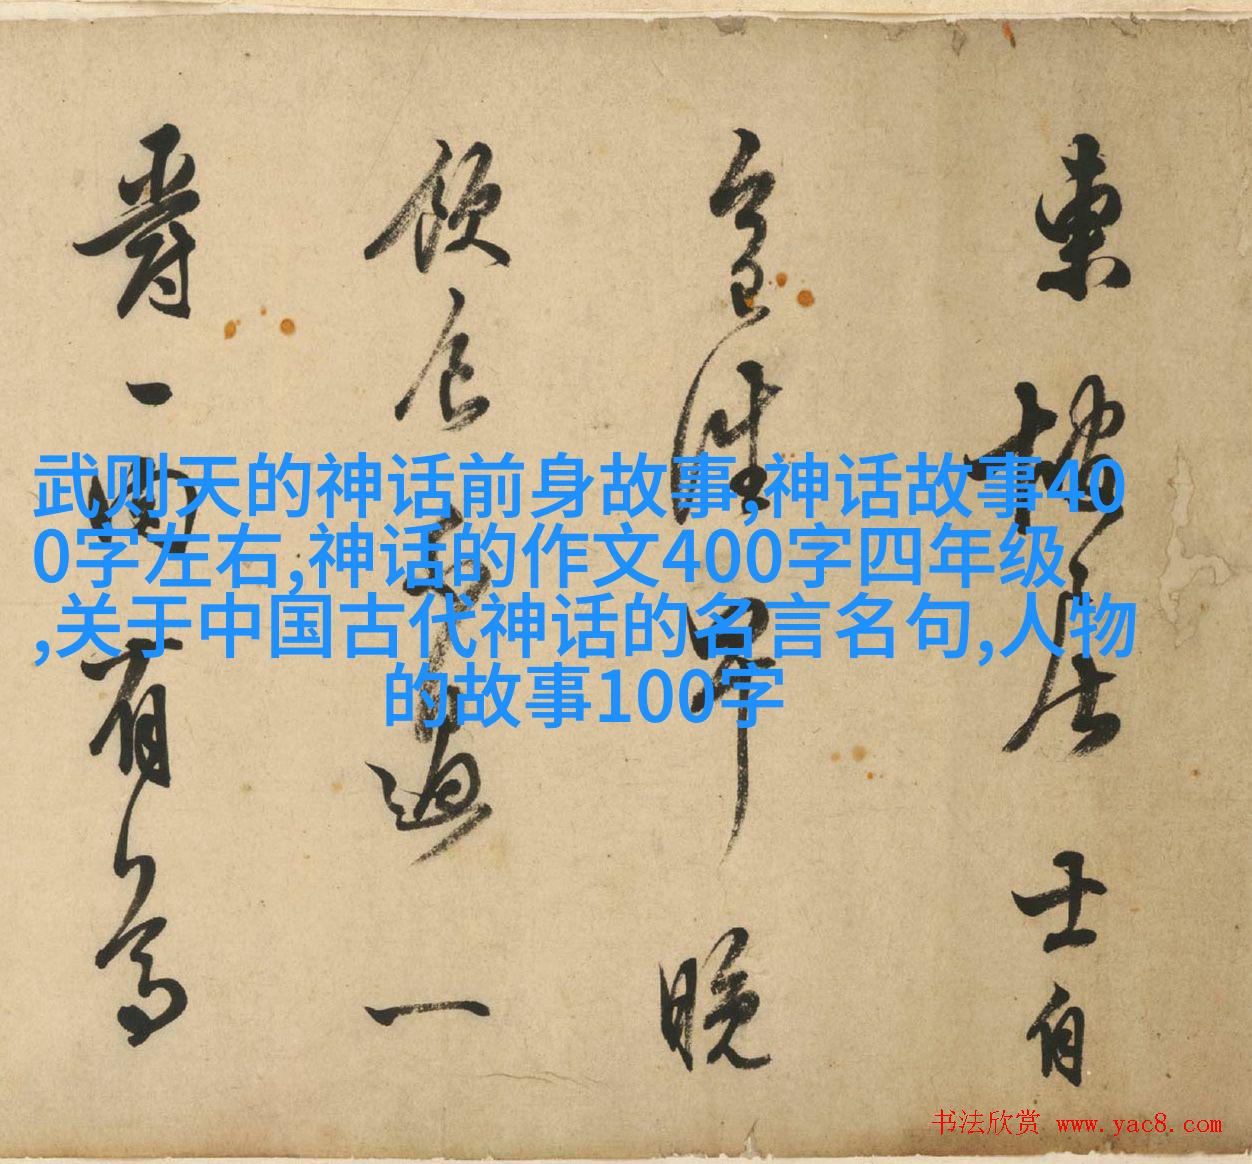 武则天的神话前身故事,神话故事40
0字左右,神话的作文400字四年级
,关于中国古代神话的名言名句,人物
的故事100字
東坡居士自
今日往早晚
飲食不過一
爵一肉有
书法欣赏 www.yac8.com